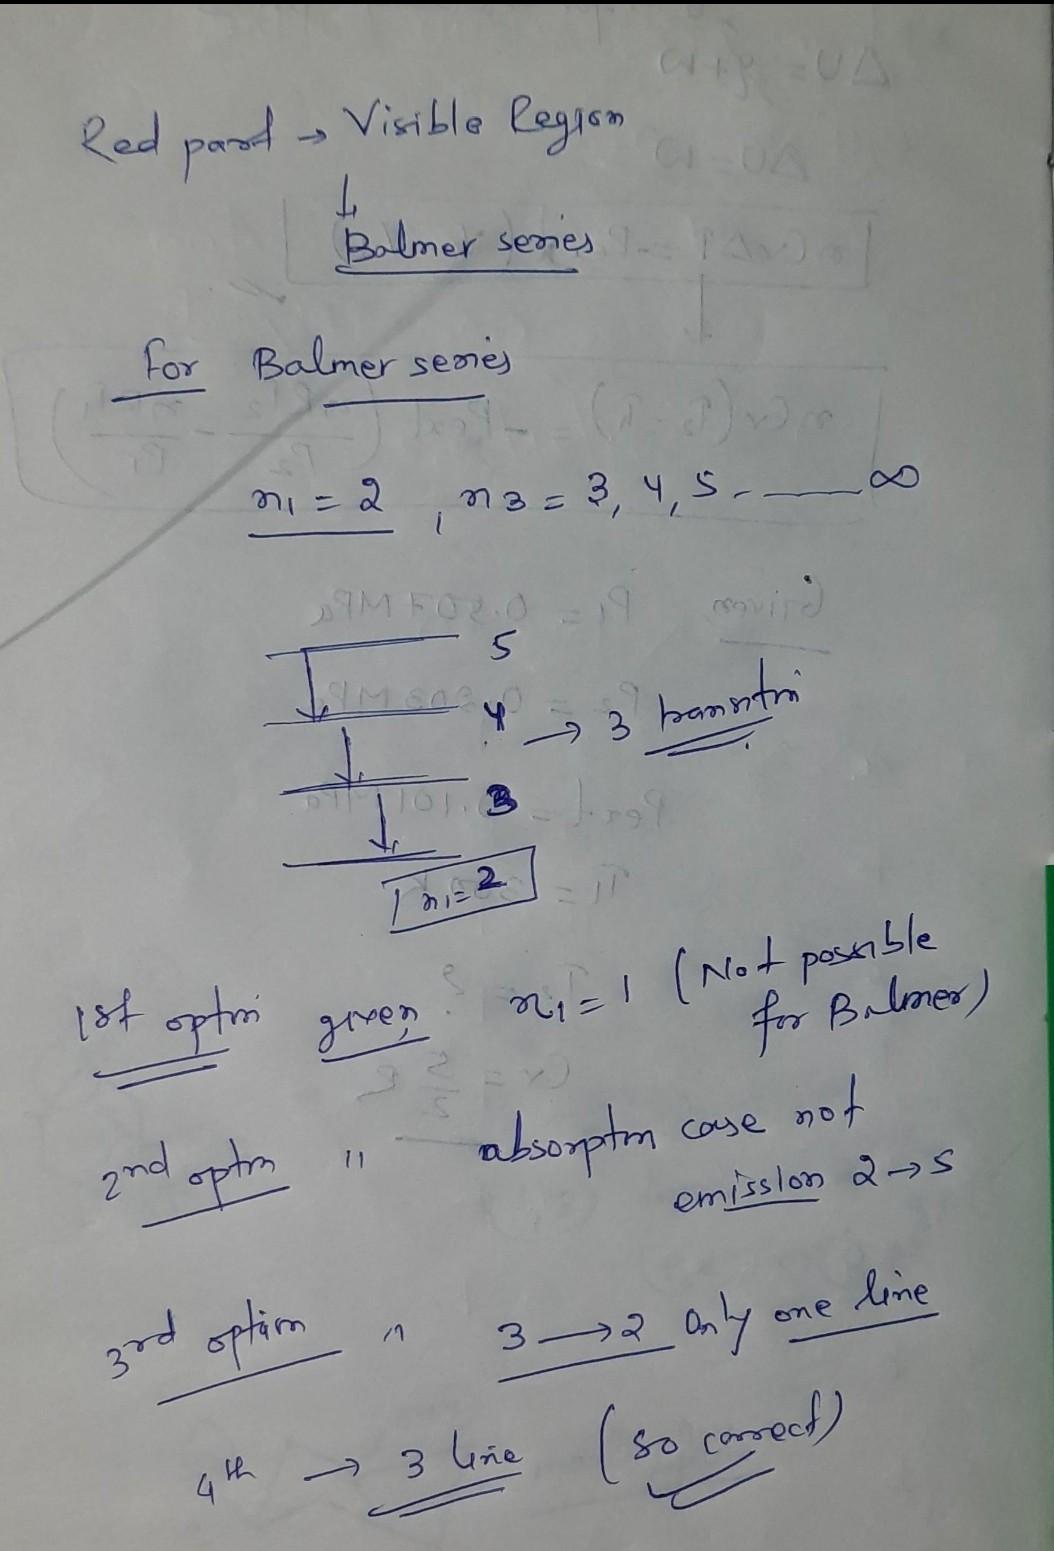 Red part → Visible Region
↓
Balmer series
For Balmer series
n1 = 2 , n3 = 3, 4, 5 - —— ∞
5
4 → 3 transitn
3
n1 = 2
1st optn given n1 = 1 (Not possible
for Balmer)
2nd optn " absorptn case not
emission 2 → 5
3rd option " 3 → 2 Only one line
4th → 3 line (so correct)